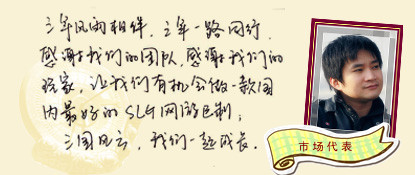 三年风雨相伴，三年一路同行，
感谢我们的团队，感谢我们的
玩家，让我们有机会做一款国
内最好的SLG网游巨制；
三国风云，我们一起成长。
市场代表